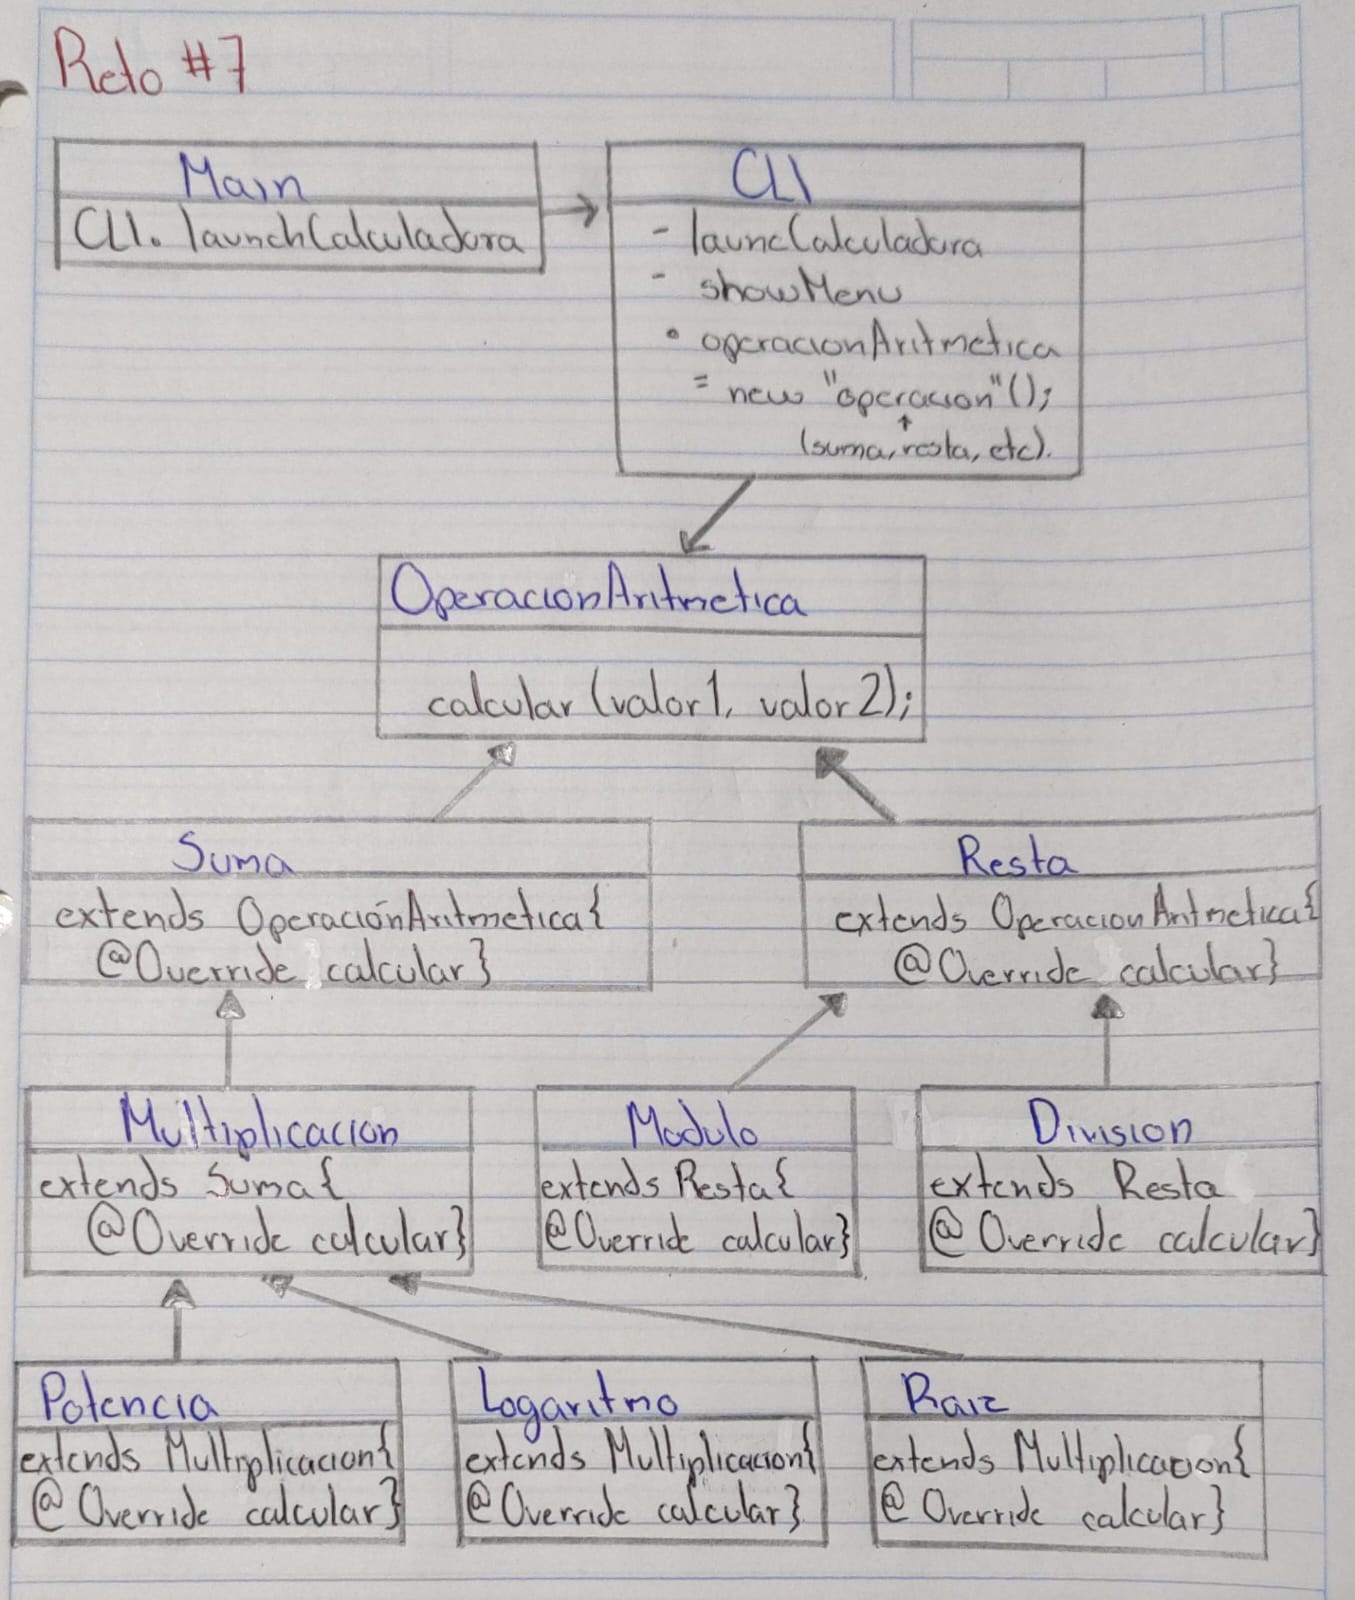 Reto #7
Main
CLI. launchCalculadora
CLI
- launcCalculadora
- showMenu
• operacionAritmetica
= new "operacion"();
(suma, resta, etc).
OperacionAritmetica
calcular (valor1, valor2);
Suma
extends OperaciónAritmetica{
@Override calcular}
Resta
extends OperacionAritmetica{
@Override calcular}
Multiplicacion
extends Suma{
@Override calcular}
Modulo
extends Resta{
@Override calcular}
Division
extends Resta
@Override calcular}
Potencia
extends Multiplicacion{
@Override calcular}
Logaritmo
extends Multiplicacion{
@Override calcular}
Raiz
extends Multiplicacion{
@Override calcular}